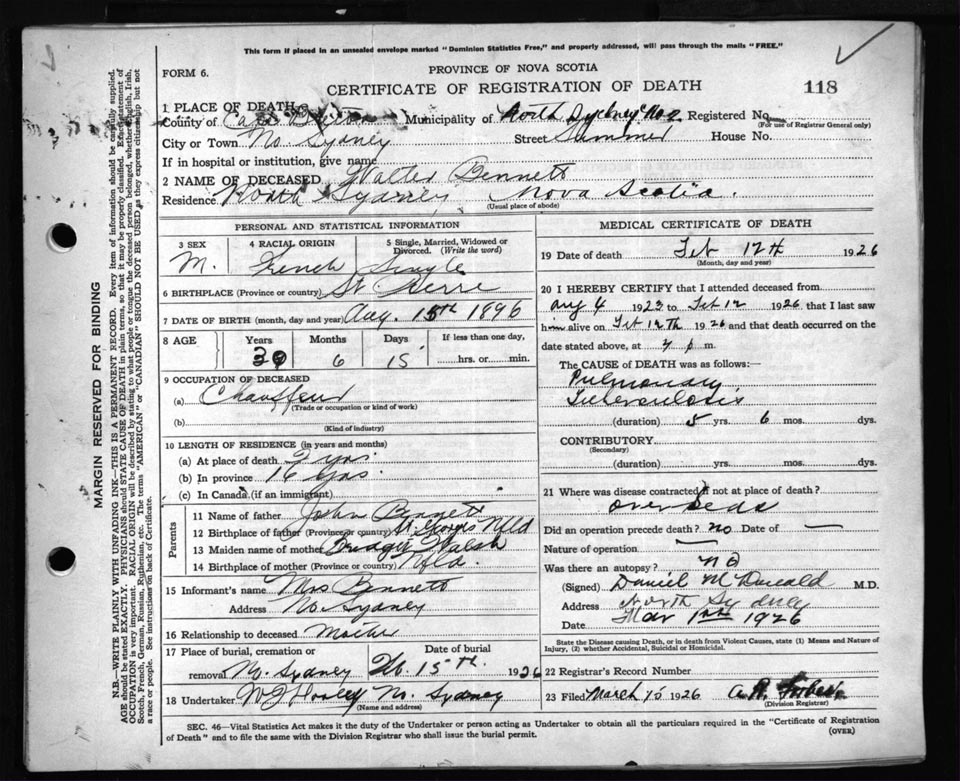 This form if placed in an unsealed envelope marked "Dominion Statistics Free," and properly addressed, will pass through the mails "FREE."
FORM 6.
PROVINCE OF NOVA SCOTIA
CERTIFICATE OF REGISTRATION OF DEATH
118
1 PLACE OF DEATH
County of Cape Breton Municipality of North Sydney No 2 Registered No.
(For use of Registrar General only)
City or Town No. Sydney Street Summer House No.
If in hospital or institution, give name
2 NAME OF DECEASED Walter Bennett
Residence North Sydney Nova Scotia.
(Usual place of abode)
PERSONAL AND STATISTICAL INFORMATION
3 SEX 4 RACIAL ORIGIN 5 Single, Married, Widowed or Divorced. (Write the word)
M. French Single
6 BIRTHPLACE (Province or country) St Pierre
7 DATE OF BIRTH (month, day and year) Aug. 15th 1896
8 AGE Years Months Days If less than one day,
6 15 hrs. or min.
9 OCCUPATION OF DECEASED
(a) Chauffeur
(Trade or occupation or kind of work)
(b)
(Kind of industry)
10 LENGTH OF RESIDENCE (in years and months)
(a) At place of death 2 yrs.
(b) In province 16 yrs.
(c) In Canada (if an immigrant)
Parents
11 Name of father John Bennett
12 Birthplace of father (Province or country) St. Georges Nfld
13 Maiden name of mother Bridget Walsh
14 Birthplace of mother (Province or country) Nfld.
15 Informant's name Mrs Bennett
Address No. Sydney
16 Relationship to deceased Mother
17 Place of burial, cremation or removal Date of burial
N. Sydney Feb. 15th. 1926
18 Undertaker No. Sydney
(Name and address)
MEDICAL CERTIFICATE OF DEATH
19 Date of death Feb 12th 1926
(Month, day and year)
20 I HEREBY CERTIFY that I attended deceased from
Aug 4 1923 to Feb 12 1926 that I last saw
him alive on Feb 12th 1926 and that death occurred on the
date stated above, at 7 p m.
The CAUSE of DEATH was as follows:—
Pulmonary
Tuberculosis
(duration) 5 yrs. 6 mos. dys.
CONTRIBUTORY
(Secondary)
(duration) yrs. mos. dys.
21 Where was disease contracted if not at place of death?
overseas
Did an operation precede death? no Date of —
Nature of operation —
Was there an autopsy? no
(Signed) Daniel McDonald M.D.
Address North Sydney
Mar 1st 1926
State the Disease causing Death, or in death from Violent Causes, state (1) Means and Nature of
Injury, (2) whether Accidental, Suicidal or Homicidal.
22 Registrar's Record Number
23 Filed March 15 1926 A. R. Forbes
(Division Registrar)
SEC. 46—Vital Statistics Act makes it the duty of the Undertaker or person acting as Undertaker to obtain all the particulars required in the "Certificate of Registration
of Death" and to file the same with the Division Registrar who shall issue the burial permit.
(OVER)
MARGIN RESERVED FOR BINDING
N.B.—WRITE PLAINLY WITH UNFADING INK—THIS IS A PERMANENT RECORD. Every item of information should be carefully supplied.
AGE should be stated EXACTLY. PHYSICIANS should STATE CAUSE OF DEATH in plain terms, so that it may be properly classified. Exact statement of
OCCUPATION is very important. RACIAL ORIGIN will be described by stating to what people or tongue the deceased person belonged, whether English, Irish,
Scotch, French, German, Russian, Ruthenian, etc. The terms "AMERICAN" or "CANADIAN" SHOULD NOT BE USED as they express citizenship but not
a race or people. See instructions on back of Certificate.